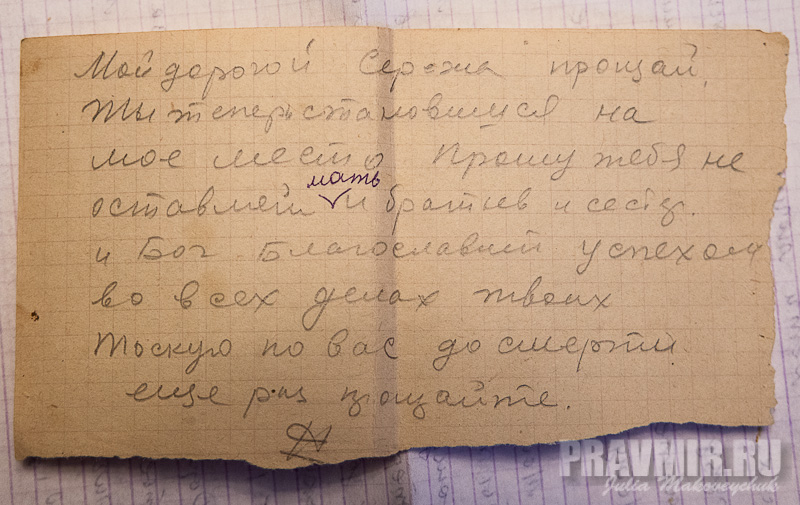 Мой дорогой Сережа прощай,
Ты теперь становишися на
мое место Прошу тебя не
мать
оставляй и братиев и сестр.
и Бог Благославит успехом
во всех делах твоих
Тоскую по вас до смерти
еще раз прощайте.
PRAVMIR.RU
Julia Makoveychuk